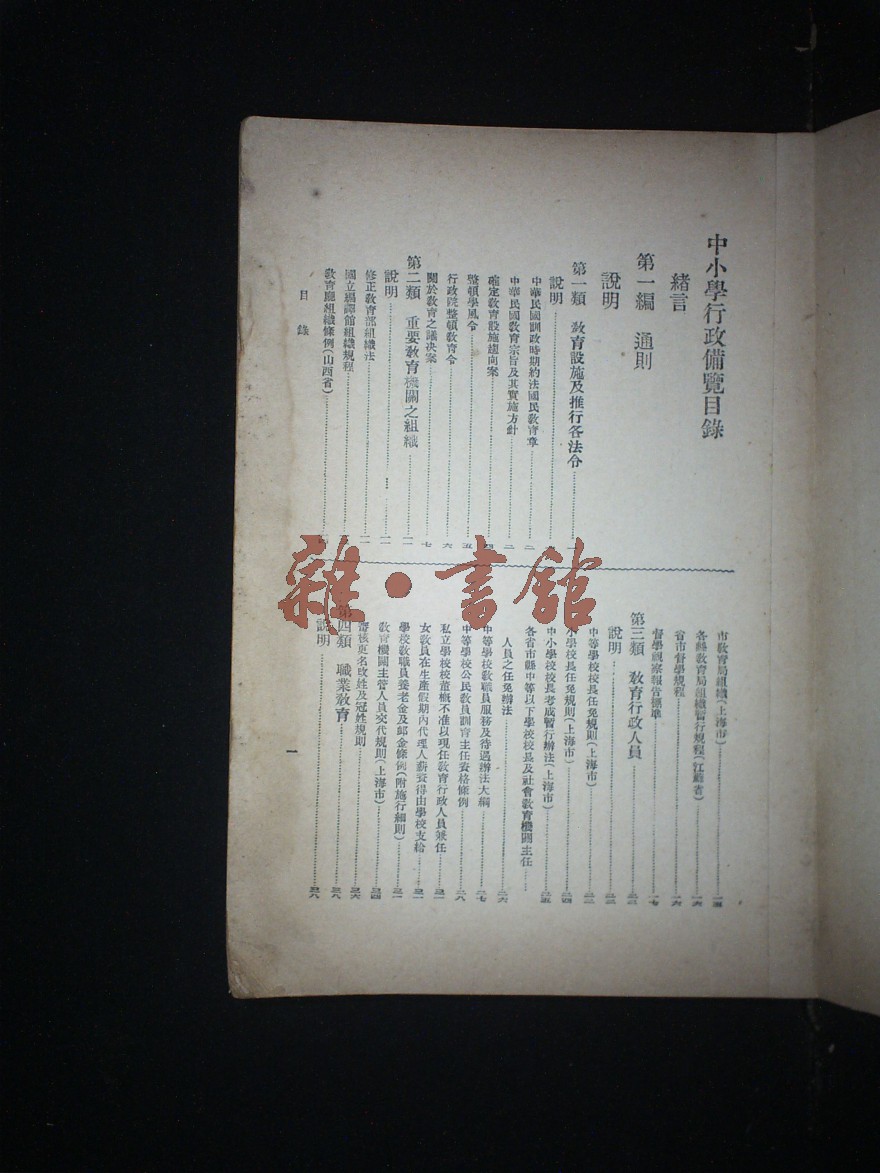 中小學行政備覽目錄
緒言
第一編　通則
說明
第一類　教育設施及推行各法令……一
說明……一
中華民國訓政時期約法國民教育章……二
中華民國教育宗旨及其實施方針……二
確定教育設施趨向案……四
整頓學風令……五
行政院整頓教育令……六
關於教育之議決案……七
第二類　重要教育機關之組織……一一
說明……一一
修正教育部組織法……一一
國立編譯館組織規程
教育廳組織條例(山西省)
市教育局組織(上海市)……一五
各縣教育局組織暫行規程(江蘇省)……一六
省市督學規程……一六
督學視察報告標準……一七
第三類　教育行政人員……二二
說明……二二
中等學校校長任免規則(上海市)……二二
小學校長任免規則(上海市)……二四
中小學校校長考成暫行辦法(上海市)……二五
各省市縣中等以下學校校長及社會教育機關主任
人員之任免辦法……二六
中等學校教職員服務及待遇辦法大綱……二七
中等學校公民教員訓育主任資格條例……二八
私立學校校董概不准以現任教育行政人員兼任……三一
女教員在生產假期內代理人薪資得由學校支給……三一
學校教職員養老金及卹金條例(附施行細則)……三一
教育機關主管人員交代規則(上海市)……三四
審核更名改姓及冠姓規則……三六
第四類　職業教育……三八
說明……三八
目錄
一
雜·書館